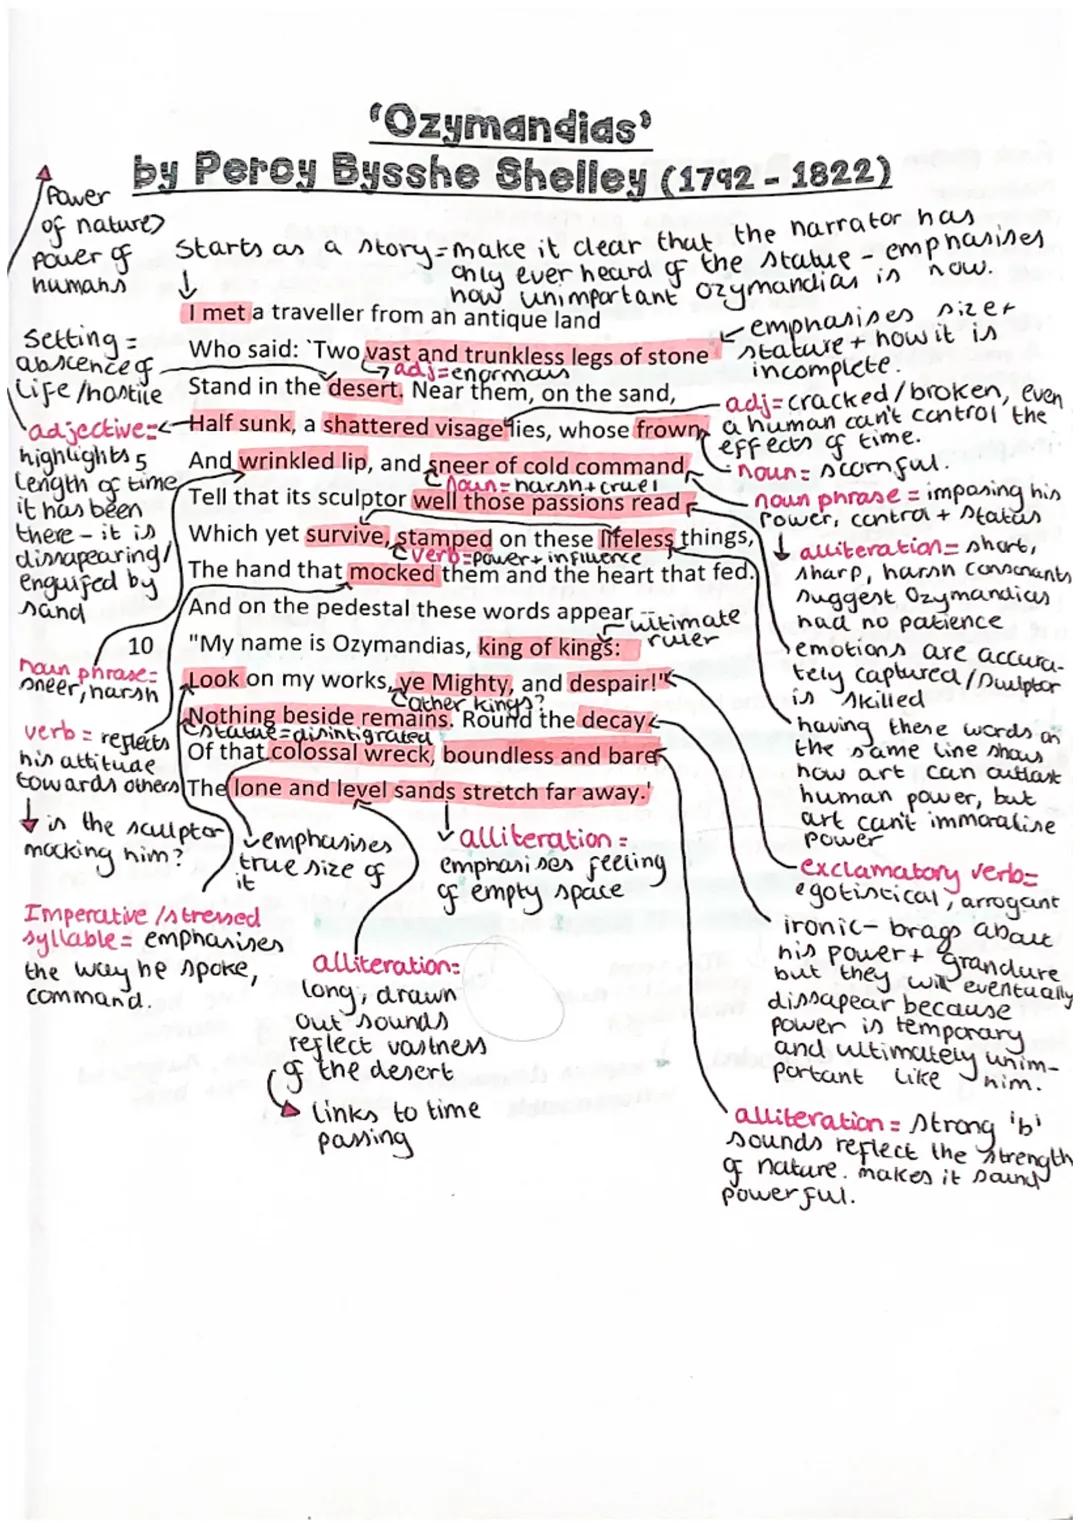 'Ozymandias'
by Percy Bysshe Shelley (1792 - 1822)
Power
of nature>
power of
humans
Starts as a story = make it clear that the narrator has
only ever heard of the statue - emphasises
how unimportant Ozymandias is now.
I met a traveller from an antique land
Who said: `Two vast and trunkless legs of stone
adj=enormous
Stand in the desert. Near them, on the sand,
Half sunk, a shattered visage lies, whose frown,
5
And wrinkled lip, and sneer of cold command,
noun=harsh+cruel
Tell that its sculptor well those passions read
Which yet survive, stamped on these lifeless things,
verb=power+influence
The hand that mocked them and the heart that fed.
And on the pedestal these words appear --
ultimate
ruler
10
"My name is Ozymandias, king of kings:
Look on my works, ye Mighty, and despair!"
other kings?
Nothing beside remains. Round the decay
statue=disintigrated
Of that colossal wreck, boundless and bare
The lone and level sands stretch far away.'
Setting =
abscence of
life/hostile
adjective=
highlights
length of time
it has been
there - it is
dissapearing/
engulfed by
sand
noun phrase=
sneer, harsh
verb = reflects
his attitude
towards others
is the sculptor
mocking him?
Imperative /stressed
syllable = emphasises
the way he spoke,
command.
emphasises
true size of
it
alliteration=
long, drawn
out sounds
reflect vastness
of the desert
links to time
passing
alliteration =
emphasises feeling
of empty space
emphasises size+
stature + how it is
incomplete.
adj=cracked/broken, even
a human can't control the
effects of time.
noun= scornful.
noun phrase = imposing his
power, control + status
alliteration= short,
sharp, harsh consonants
suggest Ozymandias
had no patience
emotions are accura-
tely captured/sculptor
is skilled
having these words on
the same line shows
how art can outlast
human power, but
art can't immoralise
power
exclamatory verb=
egotistical, arrogant
ironic- brags about
his power+ grandure
but they will eventually
dissapear because
power is temporary
and ultimately unim-
portant like him.
alliteration = strong 'b'
sounds reflect the strength
of nature. makes it sound
powerful.